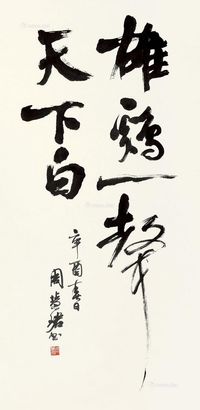 雄鷄一聲
天下白
辛酉春日
周慧珺書